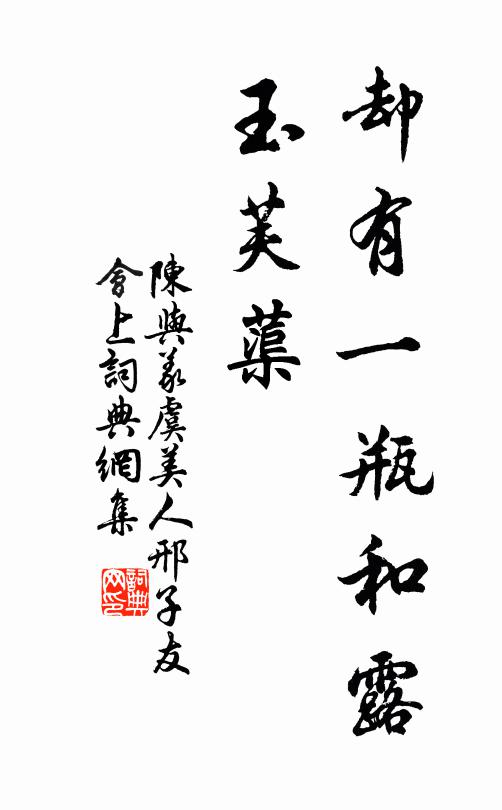 却有一瓶和露
玉芙蕖
陳與義虞美人邢子友
會上詞典網集
詞典
网印